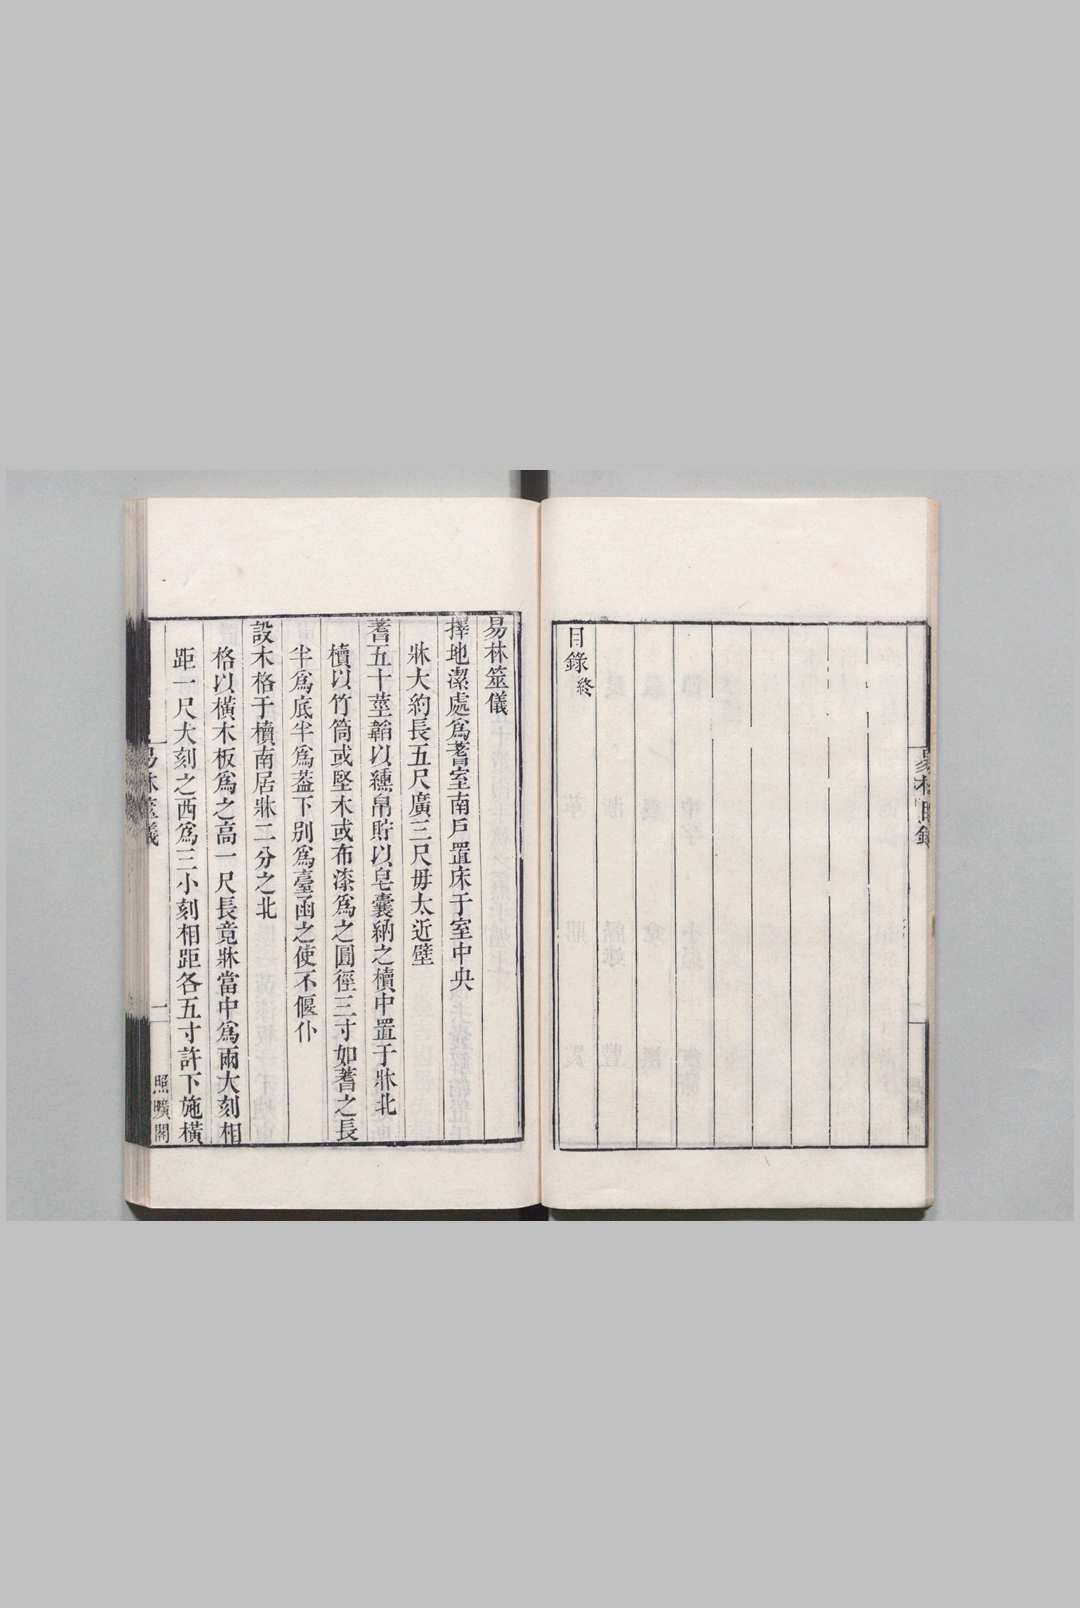 目錄終
易林目錄
易林筮儀
擇地潔處爲蓍室南戸置床于室中央
牀大約長五尺廣三尺毋太近壁
蓍五十莖韜以纁帛貯以皂囊納之櫝中置于牀北
櫝以竹筒或堅木或布漆爲之圓徑三寸如蓍之長
半爲底半爲蓋下别爲臺函之使不偃仆
設木格于櫝南居牀二分之北
格以橫木板爲之高一尺長竟牀當中爲兩大刻相
距一尺大刻之西爲三小刻相距各五寸許下施橫
易林筮儀
一
照曠閣